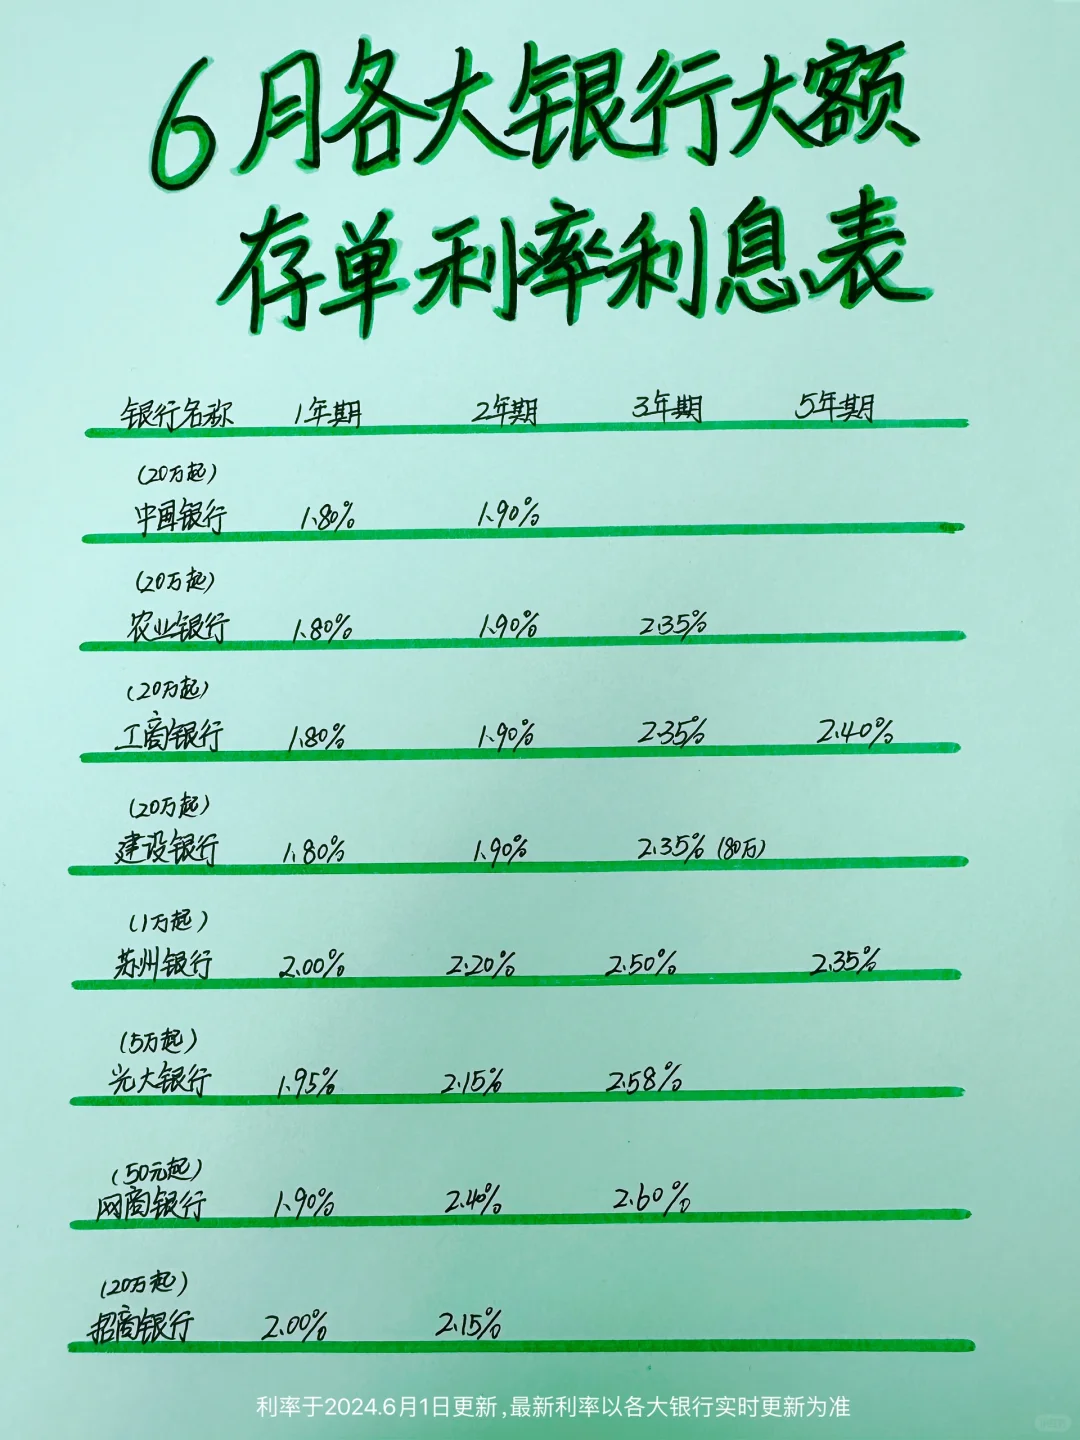 6月各大银行大额
存单利率利息表
银行名称 1年期 2年期 3年期 5年期
(20万起)
中国银行 1.80% 1.90%
(20万起)
农业银行 1.80% 1.90% 2.35%
(20万起)
工商银行 1.80% 1.90% 2.35% 2.40%
(20万起)
建设银行 1.80% 1.90% 2.35% (80万)
(1万起)
苏州银行 2.00% 2.20% 2.50% 2.35%
(5万起)
光大银行 1.95% 2.15% 2.58%
(50元起)
网商银行 1.90% 2.40% 2.60%
(20万起)
招商银行 2.00% 2.15%
利率于2024.6月1日更新,最新利率以各大银行实时更新为准